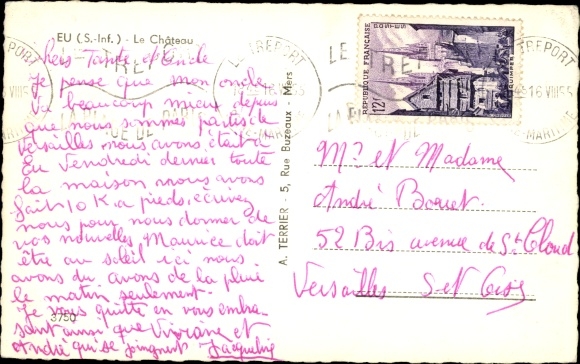 EU (S.-Inf.) - Le Château
chers Tante et Oncle
Je pense que mon oncle
va beaucoup mieux depuis
que nous sommes partis de
Versailles nous avons était à
Eu Vendredi dernier toute
la maison nous avons
fait 10 K a pieds, écrivez
nous pour nous donner de
vos nouvelles, Maurice doit
être au soleil ici nous
avons du avons de la pluie
le matin seulement.
Je vous quitte en vous embra-
sant ainsi que Viviane et
André qui se joingnent Jacqueline
3750
A. TERRIER - 5, Rue Buzeaux - Mers
LE TREPORT
16 VIII 55
RÉPUBLIQUE FRANÇAISE
POSTES
12F
QUIMPER
Mr et Madame
André
52 Bis avenue de St Cloud
Versailles S-et Oise